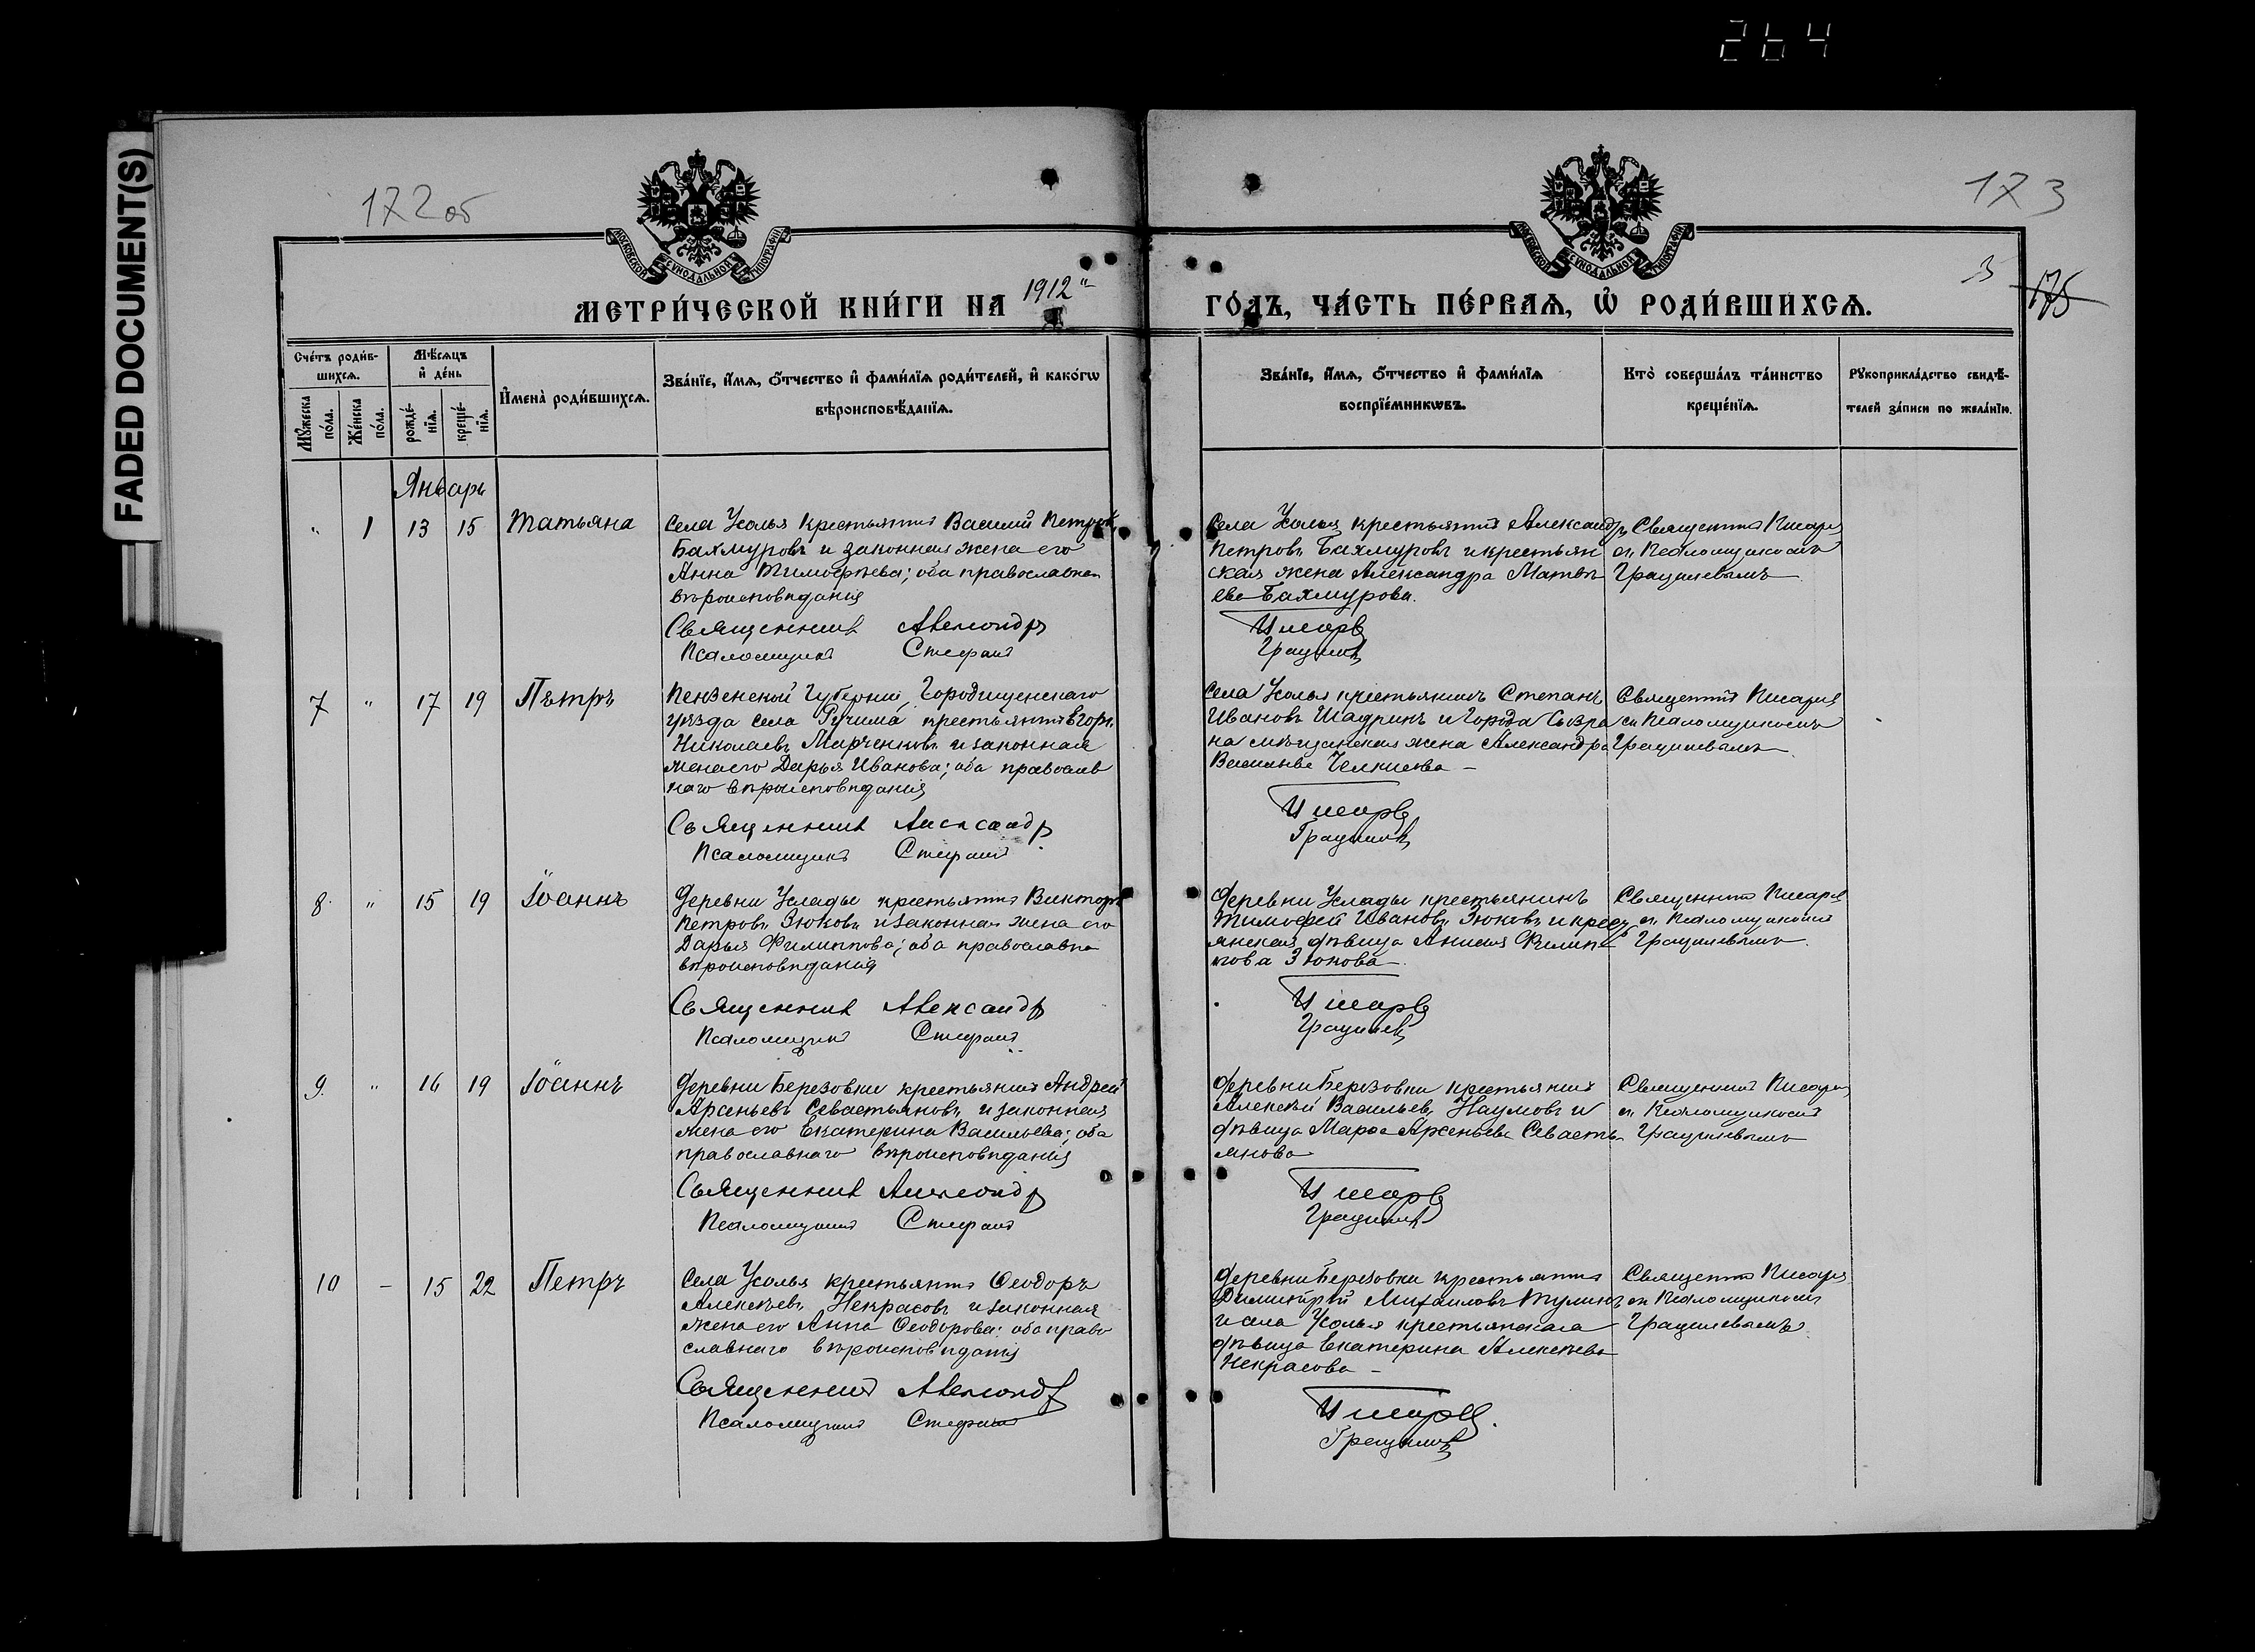 264
FADED DOCUMENT(S)
172об
173
МОСКОВСКОЙ СѴНОДАЛЬНОЙ ТИПОГРАФІИ
МОСКОВСКОЙ СѴНОДАЛЬНОЙ ТИПОГРАФІИ
3
175
МЕТРИ́ЧЕСКОЙ КНИ́ГИ НА 1912
ГО́ДЪ, ЧА́СТЬ ПЕ́РВАѦ, Ѡ҆ РОДИ́ВШИХСѦ.
Сче́тъ роди́в-
шихсѧ.
Мѣ́сѧцъ
и҆ де́нь
Мꙋ́жеска
по́ла.
Же́нска
по́ла.
рожде́-
нїѧ.
креще́-
нїѧ.
И҆мена̀ роди́вшихсѧ.
Зва́нїе, и҆́мѧ, ѻ҆́тчество и҆ фами́лїѧ роди́телей, и҆ како́гѡ
вѣроисповѣ́данїѧ.
Зва́нїе, и҆́мѧ, ѻ҆́тчество и҆ фами́лїѧ
воспрїе́мникѡвъ.
Кто̀ соверша́лъ та́инство
креще́нїѧ.
Рꙋкоприкла́дство свидѣ́-
телей за́писи по жела́нїю.
Январь
" 1 13 15 Татьяна
Села Усолья крестьянинъ Василий Петровъ
Бахмуровъ и законная жена его
Анна Тимофѣева; оба православнаго
вѣроисповѣданія
Священникъ Александръ
Псаломщикъ Стефанъ
Села Усолья крестьянинъ Александръ
Петровъ Бахмуровъ и крестьян
ская жена Александра Матвѣ
ева Бахмурова.
Писаревъ
Грацилевъ
Священникъ Писаревъ
съ Псаломщикомъ
Грацилевымъ
7 " 17 19 Пѣтръ
Пензенской Губерніи, Городищенскаго
уѣзда села Ручима крестьянинъ Егоръ
Николаевъ Марченковъ и законная
жена его Дарья Иванова; оба православ
наго вѣроисповѣданія
Священникъ Александръ
Псаломщикъ Стефанъ
Села Усолья крестьянинъ Степанъ
Ивановъ Шадринъ и Города Сызра
на мѣщанская жена Александра
Васильева
Писаревъ
Грацилевъ
Священникъ Писаревъ
съ Псаломщикомъ
Грацилевымъ
8 " 15 19 Іоаннъ
Деревни Услады крестьянинъ Викторъ
Петровъ Зюковъ и законная жена его
Дарья Филиппова; оба православна
вѣроисповѣданія
Священникъ Александръ
Псаломщикъ Стефанъ
Деревни Услады крестьянинъ
Тимофей Ивановъ Зюковъ и крест
янская дѣвица Анисия Филип
пова Зюкова
Писаревъ
Грацилевъ
Священникъ Писаревъ
съ Псаломщикомъ
Грацилевымъ
9. " 16 19 Іоаннъ
Деревни Березовки крестьянинъ Андрей
Арсеньевъ Севастьяновъ и законная
жена его Екатерина Васильева; оба
православнаго вѣроисповѣданія
Священникъ Александръ
Псаломщикъ Стефанъ
Деревни Березовки крестьянинъ
Алексѣй Васильевъ Наумовъ и
дѣвица Марѳа Арсеньева Севасть
янова
Писаревъ
Грацилевъ
Священникъ Писаревъ
съ Псаломщикомъ
Грацилевымъ
10 - 15 22 Петръ
Села Усолья крестьянинъ Ѳеодоръ
Алексѣевъ Некрасовъ и законная
жена его Анна Ѳеодорова; оба право
славнаго вѣроисповѣданія
Священникъ Александръ
Псаломщикъ Стефанъ
Деревни Березовки крестьянинъ
Димитрій Михаиловъ Тулинъ
и села Усолья крестьянская
дѣвица Екатерина Алексѣева
Некрасова
Писаревъ
Грацилевъ
Священникъ Писаревъ
съ Псаломщикомъ
Грацилевымъ